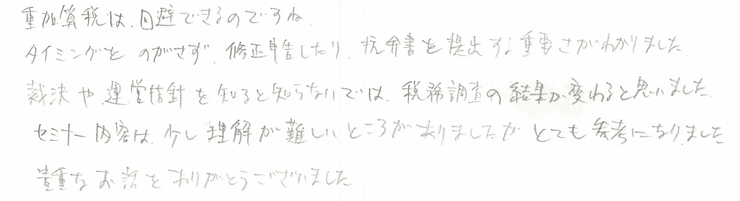 重加算税は、回避できるのですね。
タイミングをのがさず、修正申告したり、抗弁書を提出する重要さがわかりました。
裁決や運営指針を知ると知らないでは、税務調査の結果が変わると思いました。
セミナー内容は、少し理解が難しいところがありましたがとても参考になりました。
貴重なお話をありがとうございました